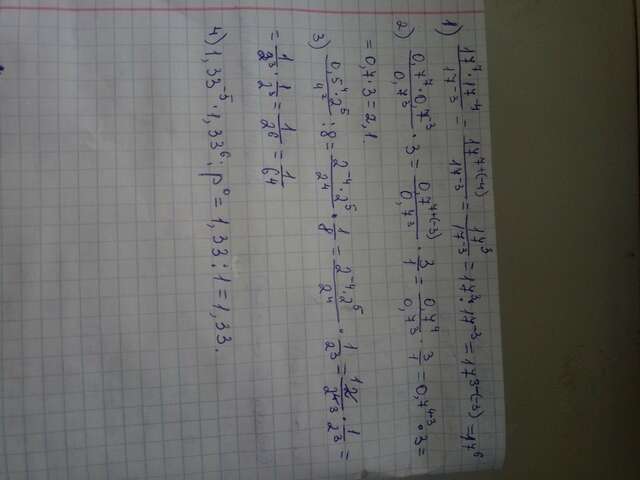 1) (17⁷ · 17⁻⁴)/17⁻³ = 17⁷⁺⁽⁻⁴⁾/17⁻³ = 17³/17⁻³ = 17³ : 17⁻³ = 17³⁻⁽⁻³⁾ = 17⁶
2) (0,7⁷ · 0,7⁻³)/0,7³ · 3 = 0,7⁷⁺⁽⁻³⁾/0,7³ · 3/1 = 0,7⁴/0,7³ · 3/1 = 0,7⁴⁻³ · 3 =
= 0,7 · 3 = 2,1.
3) (0,5⁴ · 2⁵)/4² : 8 = (2⁻⁴ · 2⁵)/2⁴ · 1/8 = (2⁻⁴ · 2⁵)/2⁴ · 1/2³ = 2/2⁴ · 1/2³ =
= 1/2³ · 1/2³ = 1/2⁶ = 1/64
4) 1,33⁻⁵ · 1,33⁶ : p⁰ = 1,33 : 1 = 1,33.